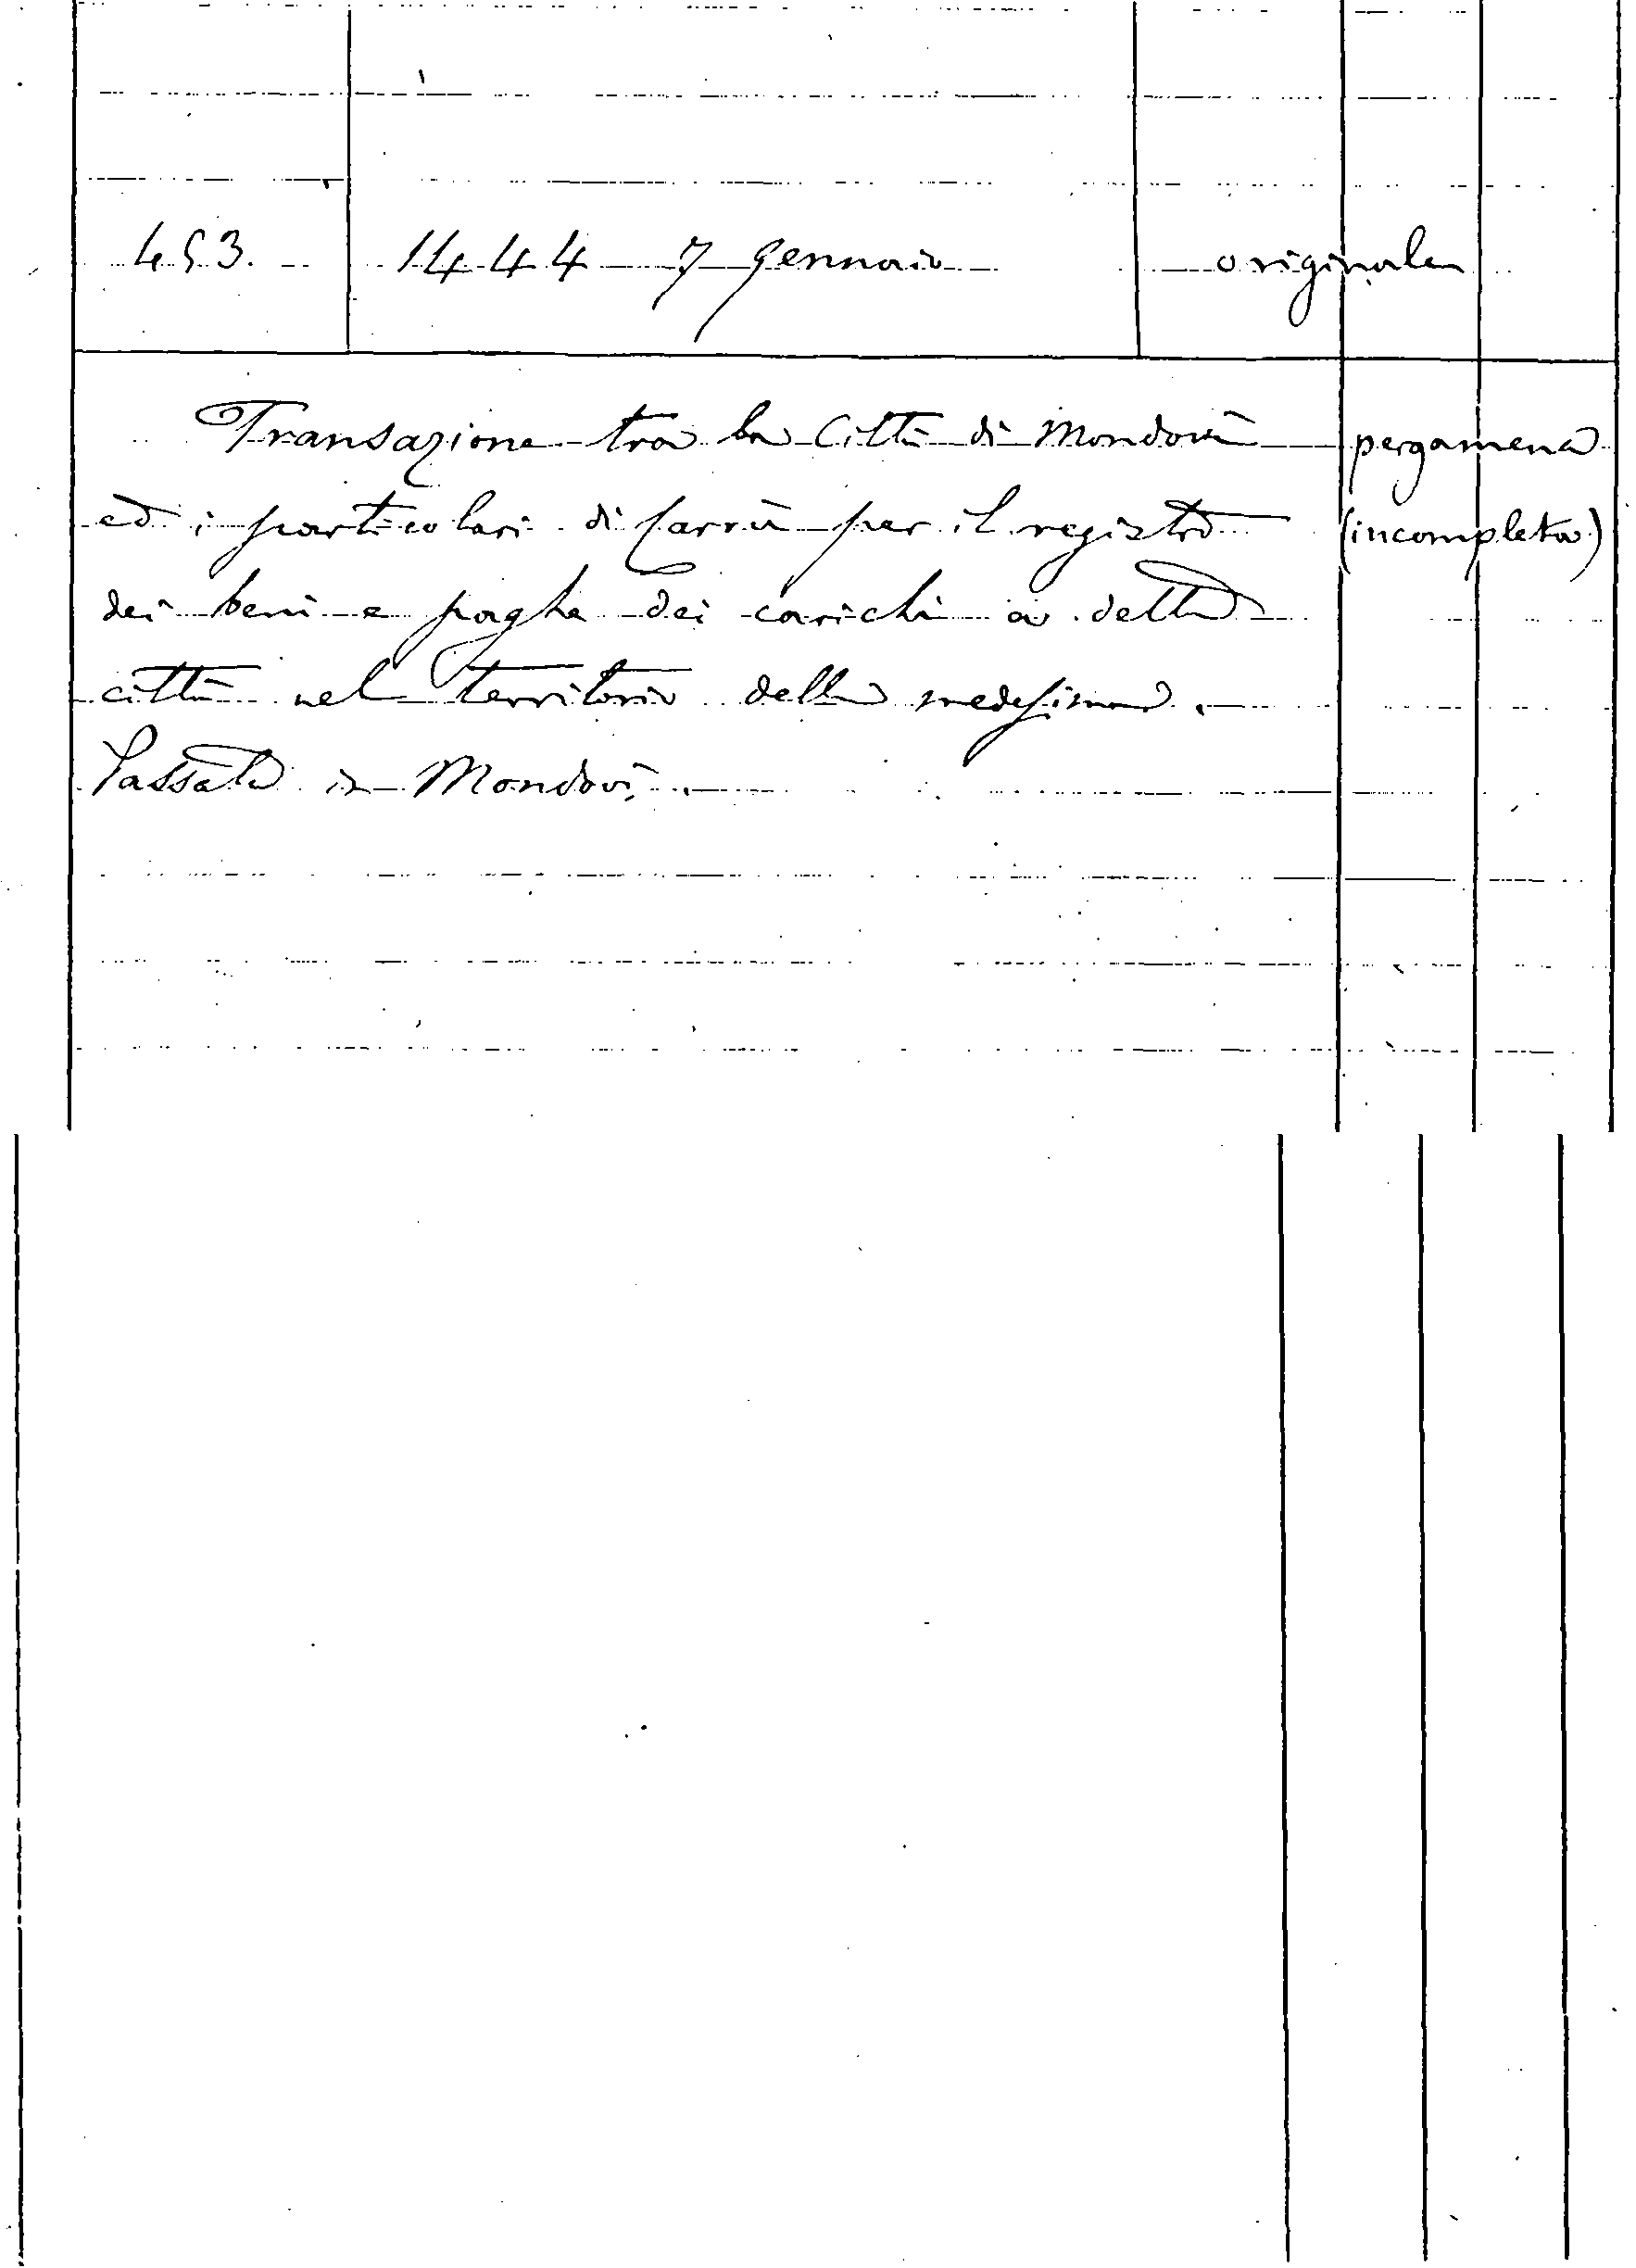 453. 1444 7 gennaio originale
Transazione tra la Città di Mondovì pergamena
ed i particolari di Carrù per il registro (incompleta)
dei beni e paghe dei carichi a detta
città nel territorio della medesima.
Passata in Mondovì.